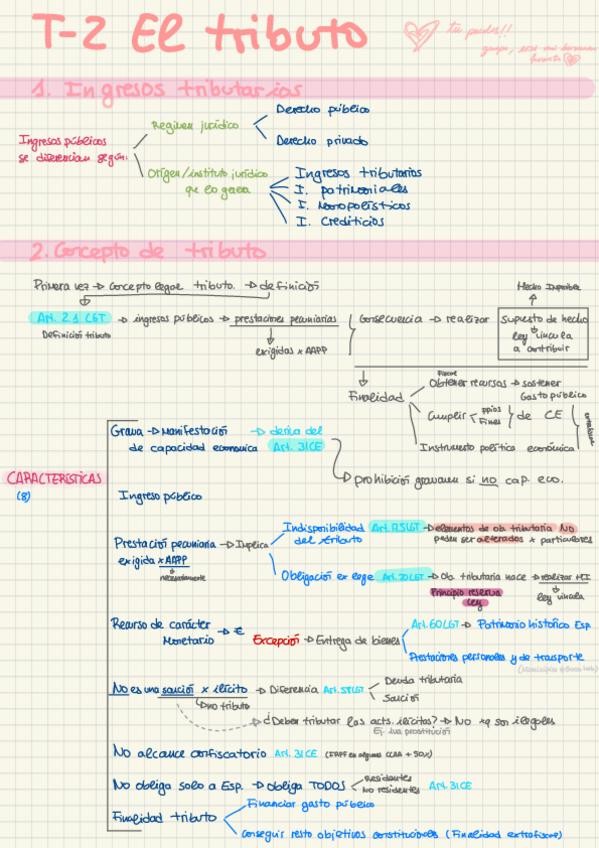 T-2 El tributo
tu puedes!!
1. Ingresos tributarios
Ingresos públicos
se diferencian según:
Regimen jurídico
Derecho público
Derecho privado
Origen/instituto jurídico
que lo grava
Ingresos tributarios
I. patrimoniales
I. Monopolísticos
I. Crediticios
2. Concepto de tributo
Primera vez → Concepto legal tributo. → definición
Art. 2.1 LGT → ingresos públicos → prestaciones pecuniarias
Definición tributo
exigidas x AAPP
Consecuencia → realizar
Hecho Imponible
Supuesto de hecho
ley vincula
a contribuir
Finalidad
Fiscal
Obtener recursos → sostener
Gasto público
Cumplir
ppios
Fines
de CE
Instrumento política económica
CARACTERÍSTICAS
(8)
Grava → Manifestación
de capacidad economica
→ deriva del
Art. 31CE
prohibición gravamen si no cap. eco.
Ingreso público
Prestación pecuniaria → Implica
exigida x AAPP
necesariamente
Indisponibilidad
del tributo
Art. 17.5LGT → elementos de ob. tributaria NO
pueden ser alterados x particulares
Obligación ex lege Art. 20LGT → Ob. tributaria nace → realizar HI
Principio reserva
ley
ley vincula
Recurso de carácter
Monetario
→ €
Excepción → Entrega de bienes
Art. 60LGT → Patrimonio histórico Esp
Prestaciones personales y de transporte
No es una sanción x ilícito → Diferencia Art. 58LGT
no tributo
Deuda tributaria
Sanción
¿Deben tributar los acts. ilícitas? → No xq son ilegales
Ej. la prostitución
No alcance confiscatorio Art. 31CE (IRPF en algunas CCAA + 50%)
No obliga solo a Esp. → obliga TODOS
Residentes
No residentes
Art. 31CE
Finalidad tributo
Financiar gasto público
conseguir resto objetivos constitucionales (Finalidad extrafiscal)